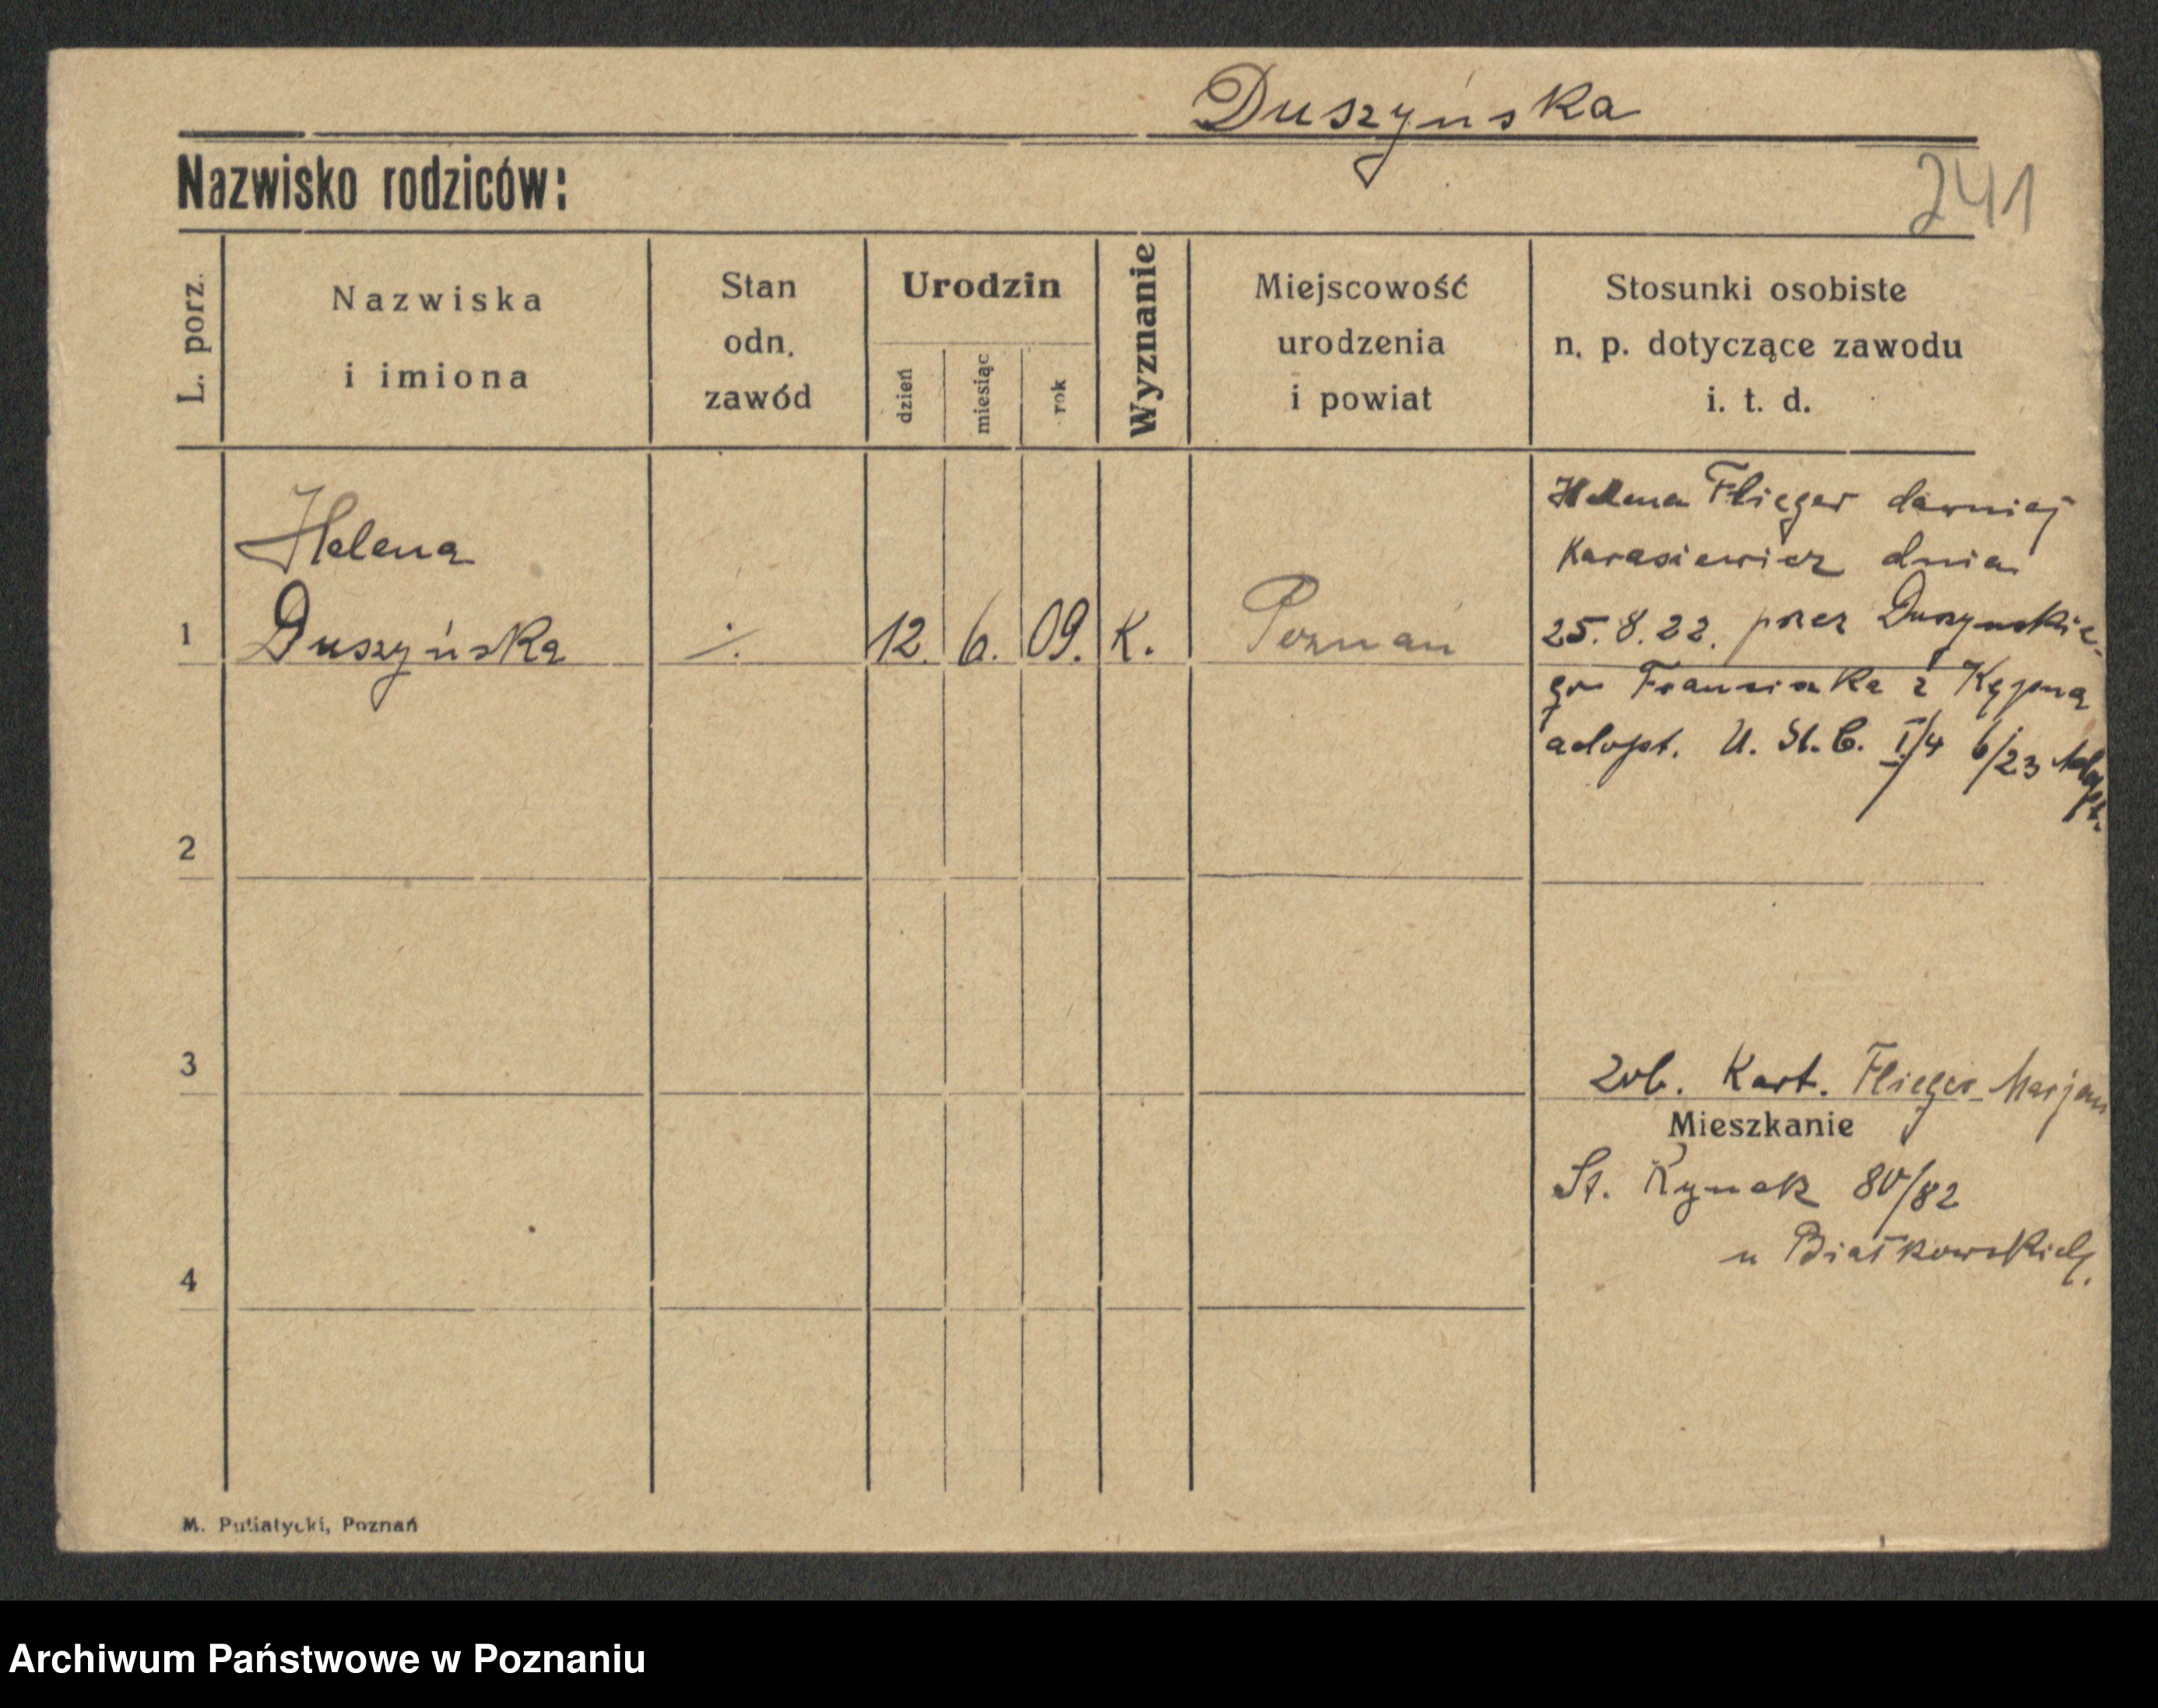 Duszyńska
Nazwisko rodziców:
241
L. porz.
Nazwiska
i imiona
Stan
odn.
zawód
Urodzin
dzień
miesiąc
rok
Wyznanie
Miejscowość
urodzenia
i powiat
Stosunki osobiste
n. p. dotyczące zawodu
i. t. d.
1
Helena
Duszyńska
·/.
12. 6. 09. K.
Poznań
Helena Flieger dawniej
Karasiewicz dnia
25. 8. 22. przez Duszyńskie-
go Franciszka z Kępna
adopt. U. St. C. I/4 6/23 Adopt.
2
3
Zob. Kart. Flieger Marjan
Mieszkanie
St. Rynek 80/82
u Białkowskich.
4
M. Putiatycki, Poznań
Archiwum Państwowe w Poznaniu